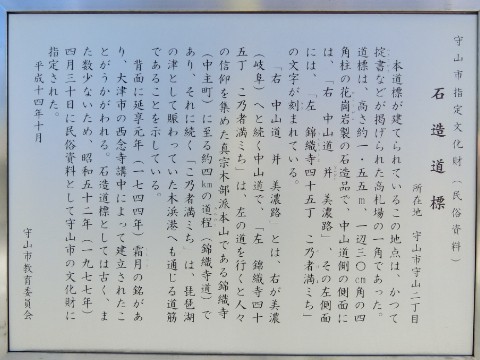 守山市指定文化財(民俗資料)
石造道標
所在地 守山市守山二丁目
本道標が建てられているこの地点は、かつて
掟書などが掲げられた高札場の一角であった。
道標は、高さ約一・五五m、一辺三〇㎝角の四
角柱の花崗岩製の石造品で、中山道側の側面に
は、「右 中山道 幷 美濃路」、その左側面
には、「左 錦織寺四十五丁 こ乃者満ミち」
の文字が刻まれている。
「右 中山道 幷 美濃路」とは、右が美濃
(岐阜)へと続く中山道で、「左 錦織寺四十
五丁 こ乃者満ミち」は、左の道を行くと人々
の信仰を集めた真宗木部派本山である錦織寺
(中主町)に至る約四㎞の道程(錦織寺道)で
あり、それに続く「こ乃者満ミち」は、琵琶湖
の津として賑わっていた木浜港へも通じる道筋
であることを示している。
背面に延享元年(一七四四年)霜月の銘があ
り、大津市の西念寺講中によって建立されたこ
とがうかがわれる。石造道標としては古く、ま
た数少ないため、昭和五十二年(一九七七年)
四月三十日に民俗資料として守山市の文化財に
指定された。
平成十四年十月
守山市教育委員会